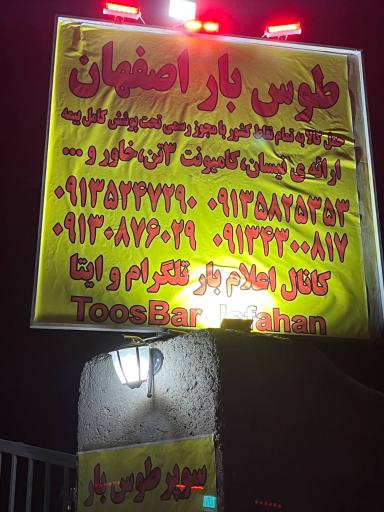 طوس بار اصفهان
حمل کالا به تمام نقاط کشور با مجوز رسمی تحت پوشش کامل بیمه
ارائه ی نیسان، کامیونت ۳تن، خاور و ...
۰۹۱۳۵۲۴۷۲۹۰ ۰۹۱۳۵۸۲۵۳۵۳
۰۹۱۳۰۸۷۶۰۲۹ ۰۹۱۳۴۳۰۰۸۱۷
کانال اعلام بار تلگرام و ایتا
ToosBar_Isfahan
سوپر طوس بار